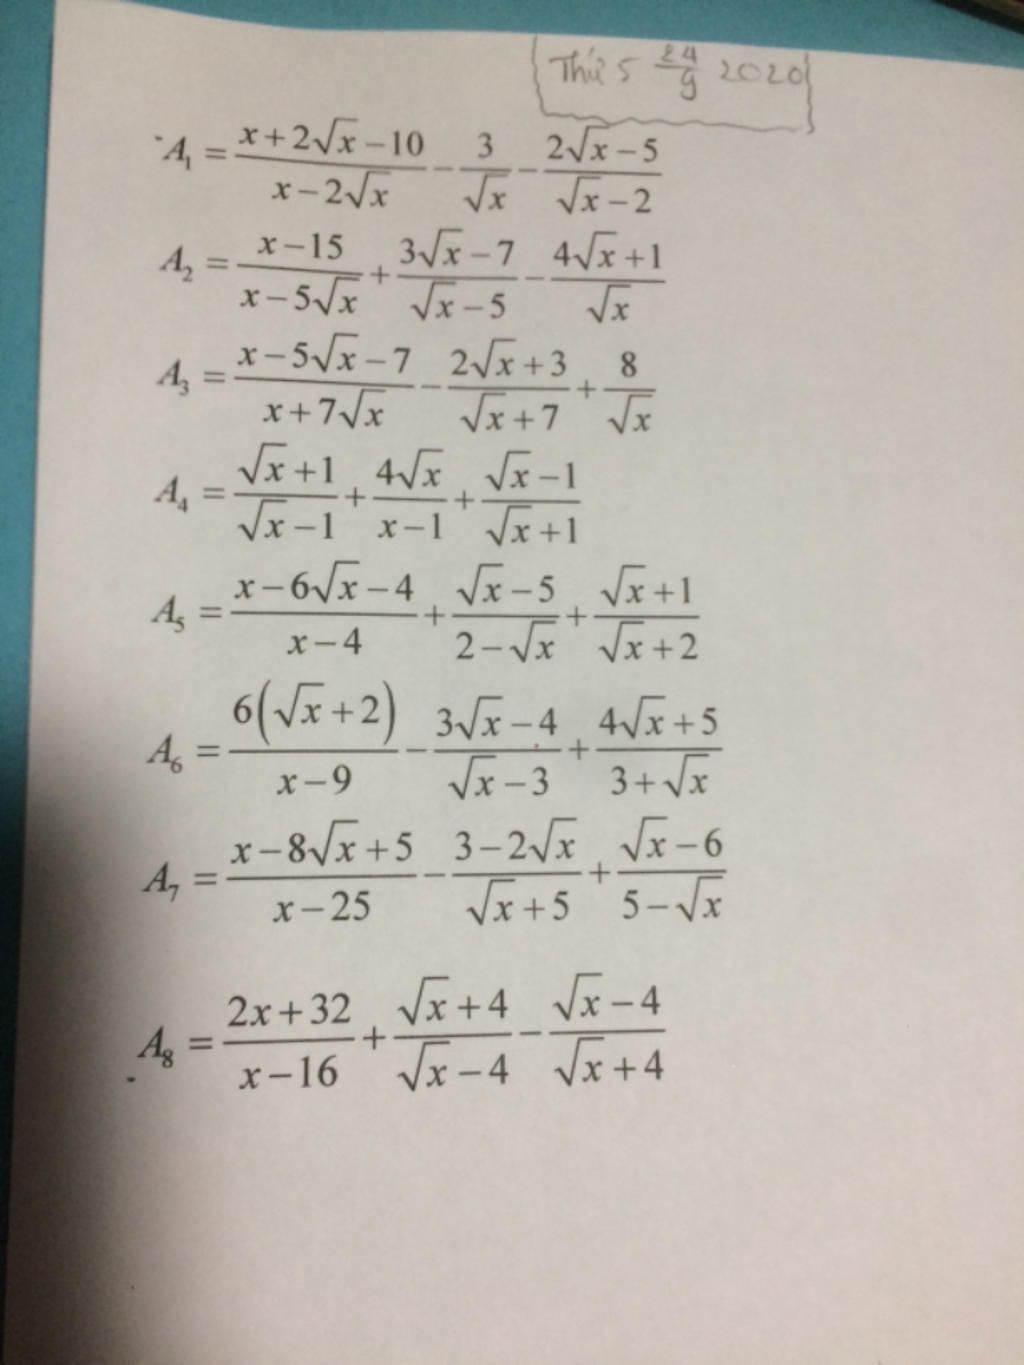 Thứ 5 24/9 2020
A₁ = (x+2√x−10)/(x−2√x) − 3/√x − (2√x−5)/(√x−2)
A₂ = (x−15)/(x−5√x) + (3√x−7)/(√x−5) − (4√x+1)/√x
A₃ = (x−5√x−7)/(x+7√x) − (2√x+3)/(√x+7) + 8/√x
A₄ = (√x+1)/(√x−1) + 4√x/(x−1) + (√x−1)/(√x+1)
A₅ = (x−6√x−4)/(x−4) + (√x−5)/(2−√x) + (√x+1)/(√x+2)
A₆ = 6(√x+2)/(x−9) − (3√x−4)/(√x−3) + (4√x+5)/(3+√x)
A₇ = (x−8√x+5)/(x−25) − (3−2√x)/(√x+5) + (√x−6)/(5−√x)
A₈ = (2x+32)/(x−16) + (√x+4)/(√x−4) − (√x−4)/(√x+4)